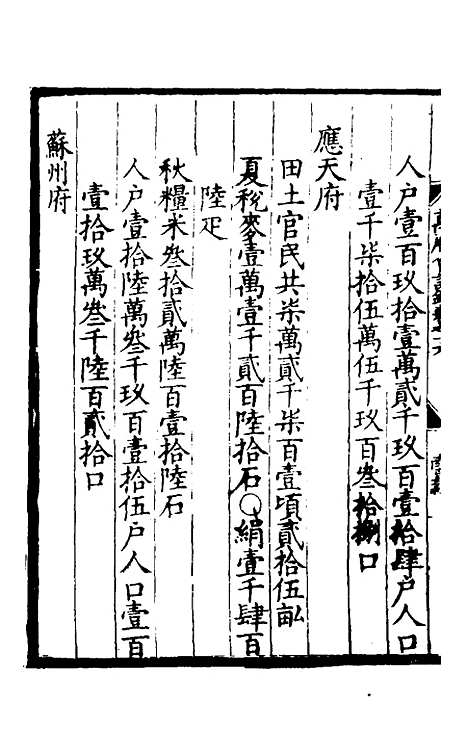 人户壹百玖拾壹萬貳千玖百壹拾肆户人口
壹千柒拾伍萬伍千玖百叁拾捌口
應天府
田土官民共柒萬貳千柒百壹頃貳拾伍畝
夏稅麥壹萬壹千貳百陸拾石○絹壹千肆百
陸疋
秋糧米叁拾貳萬陸百壹拾陸石
人户壹拾陸萬叁千玖百壹拾伍户人口壹百
壹拾玖萬叁千陸百貳拾口
蘇州府